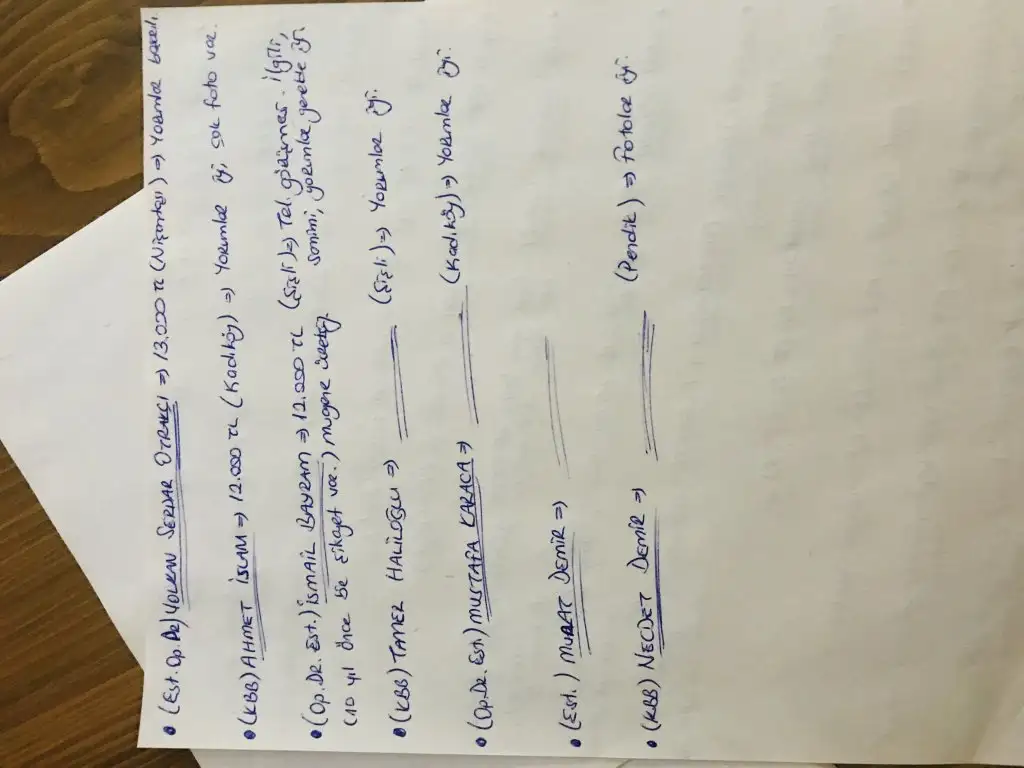 • (Est. Op. Dr) VOLKAN SERDAR OTRAKÇI => 13.000 TL (Nişantaşı) => Yorumlar
• (KBB) AHMET İSLAM => 12.000 TL (Kadıköy) => Yorumlar iyi, çok foto var.
• (Op. Dr. Est.) İSMAİL BAYRAM => 12.000 TL (Şişli) => Tel. görüşmesi - ilgili,
samimi, yorumlar genelde iyi
(10 yıl önce bir şikayet var.) muayene ücretsiz
• (KBB) TAMER HALİLOĞLU => (Şişli) => Yorumlar iyi.
• (Op. Dr. Est) MUSTAFA KARACA => (Kadıköy) => Yorumlar iyi.
• (Est.) MURAT DEMİR =>
• (KBB) NECDET DEMİR => (Pendik) => Fotolar iyi